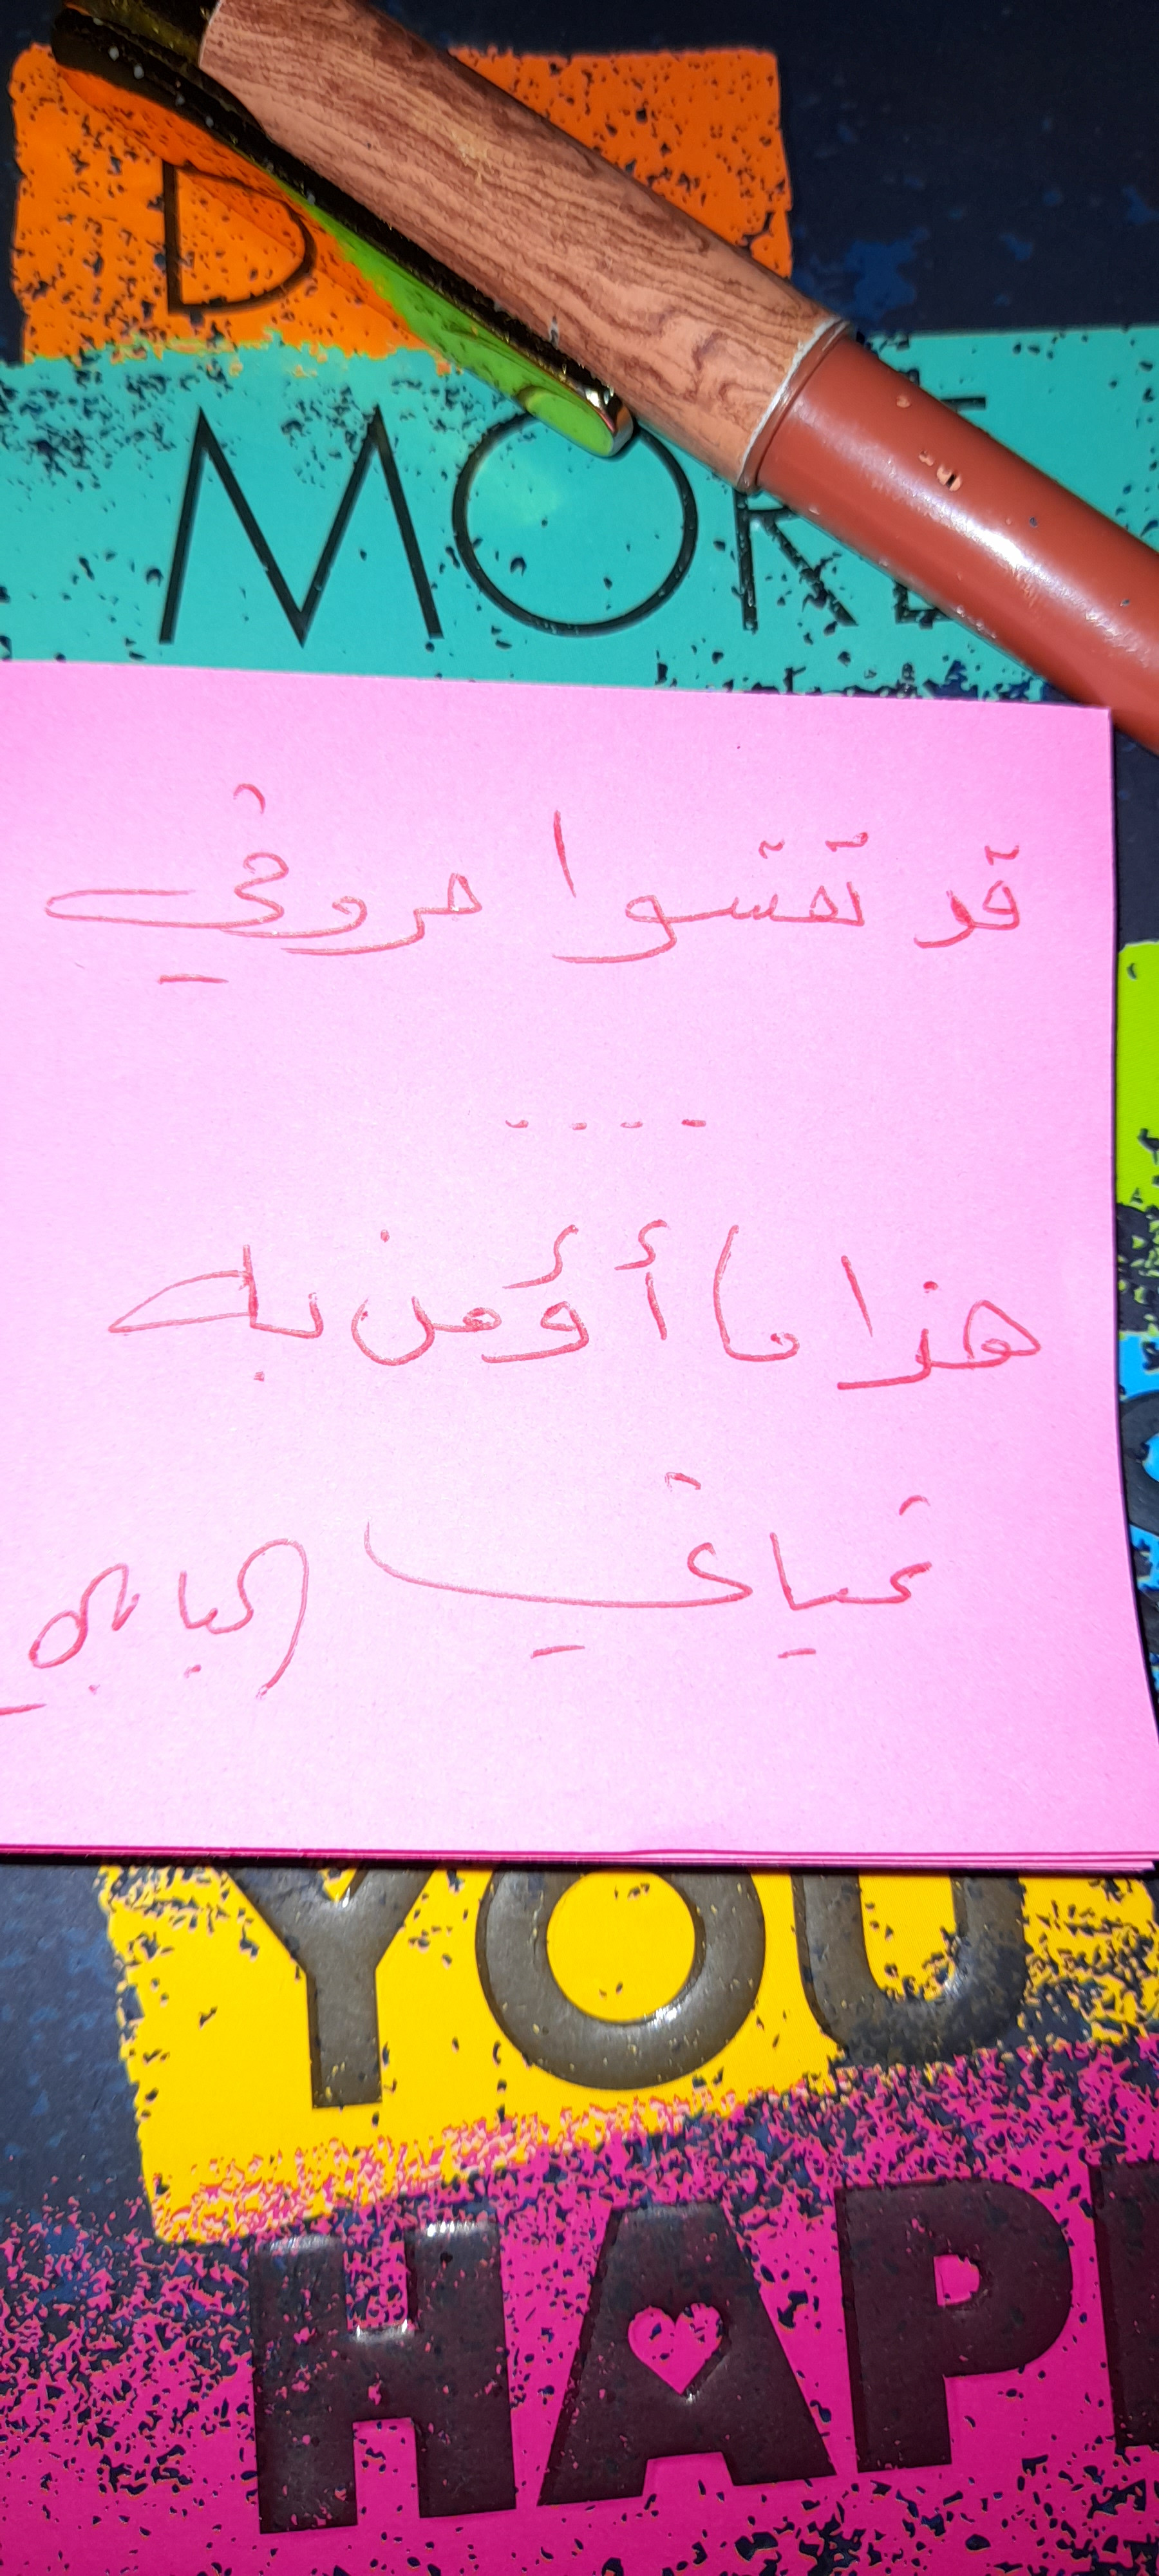 D
MORE
قد تقسوا حروفي
.....
هذا ما أؤمن به
تحياتي
YOU
HAPP